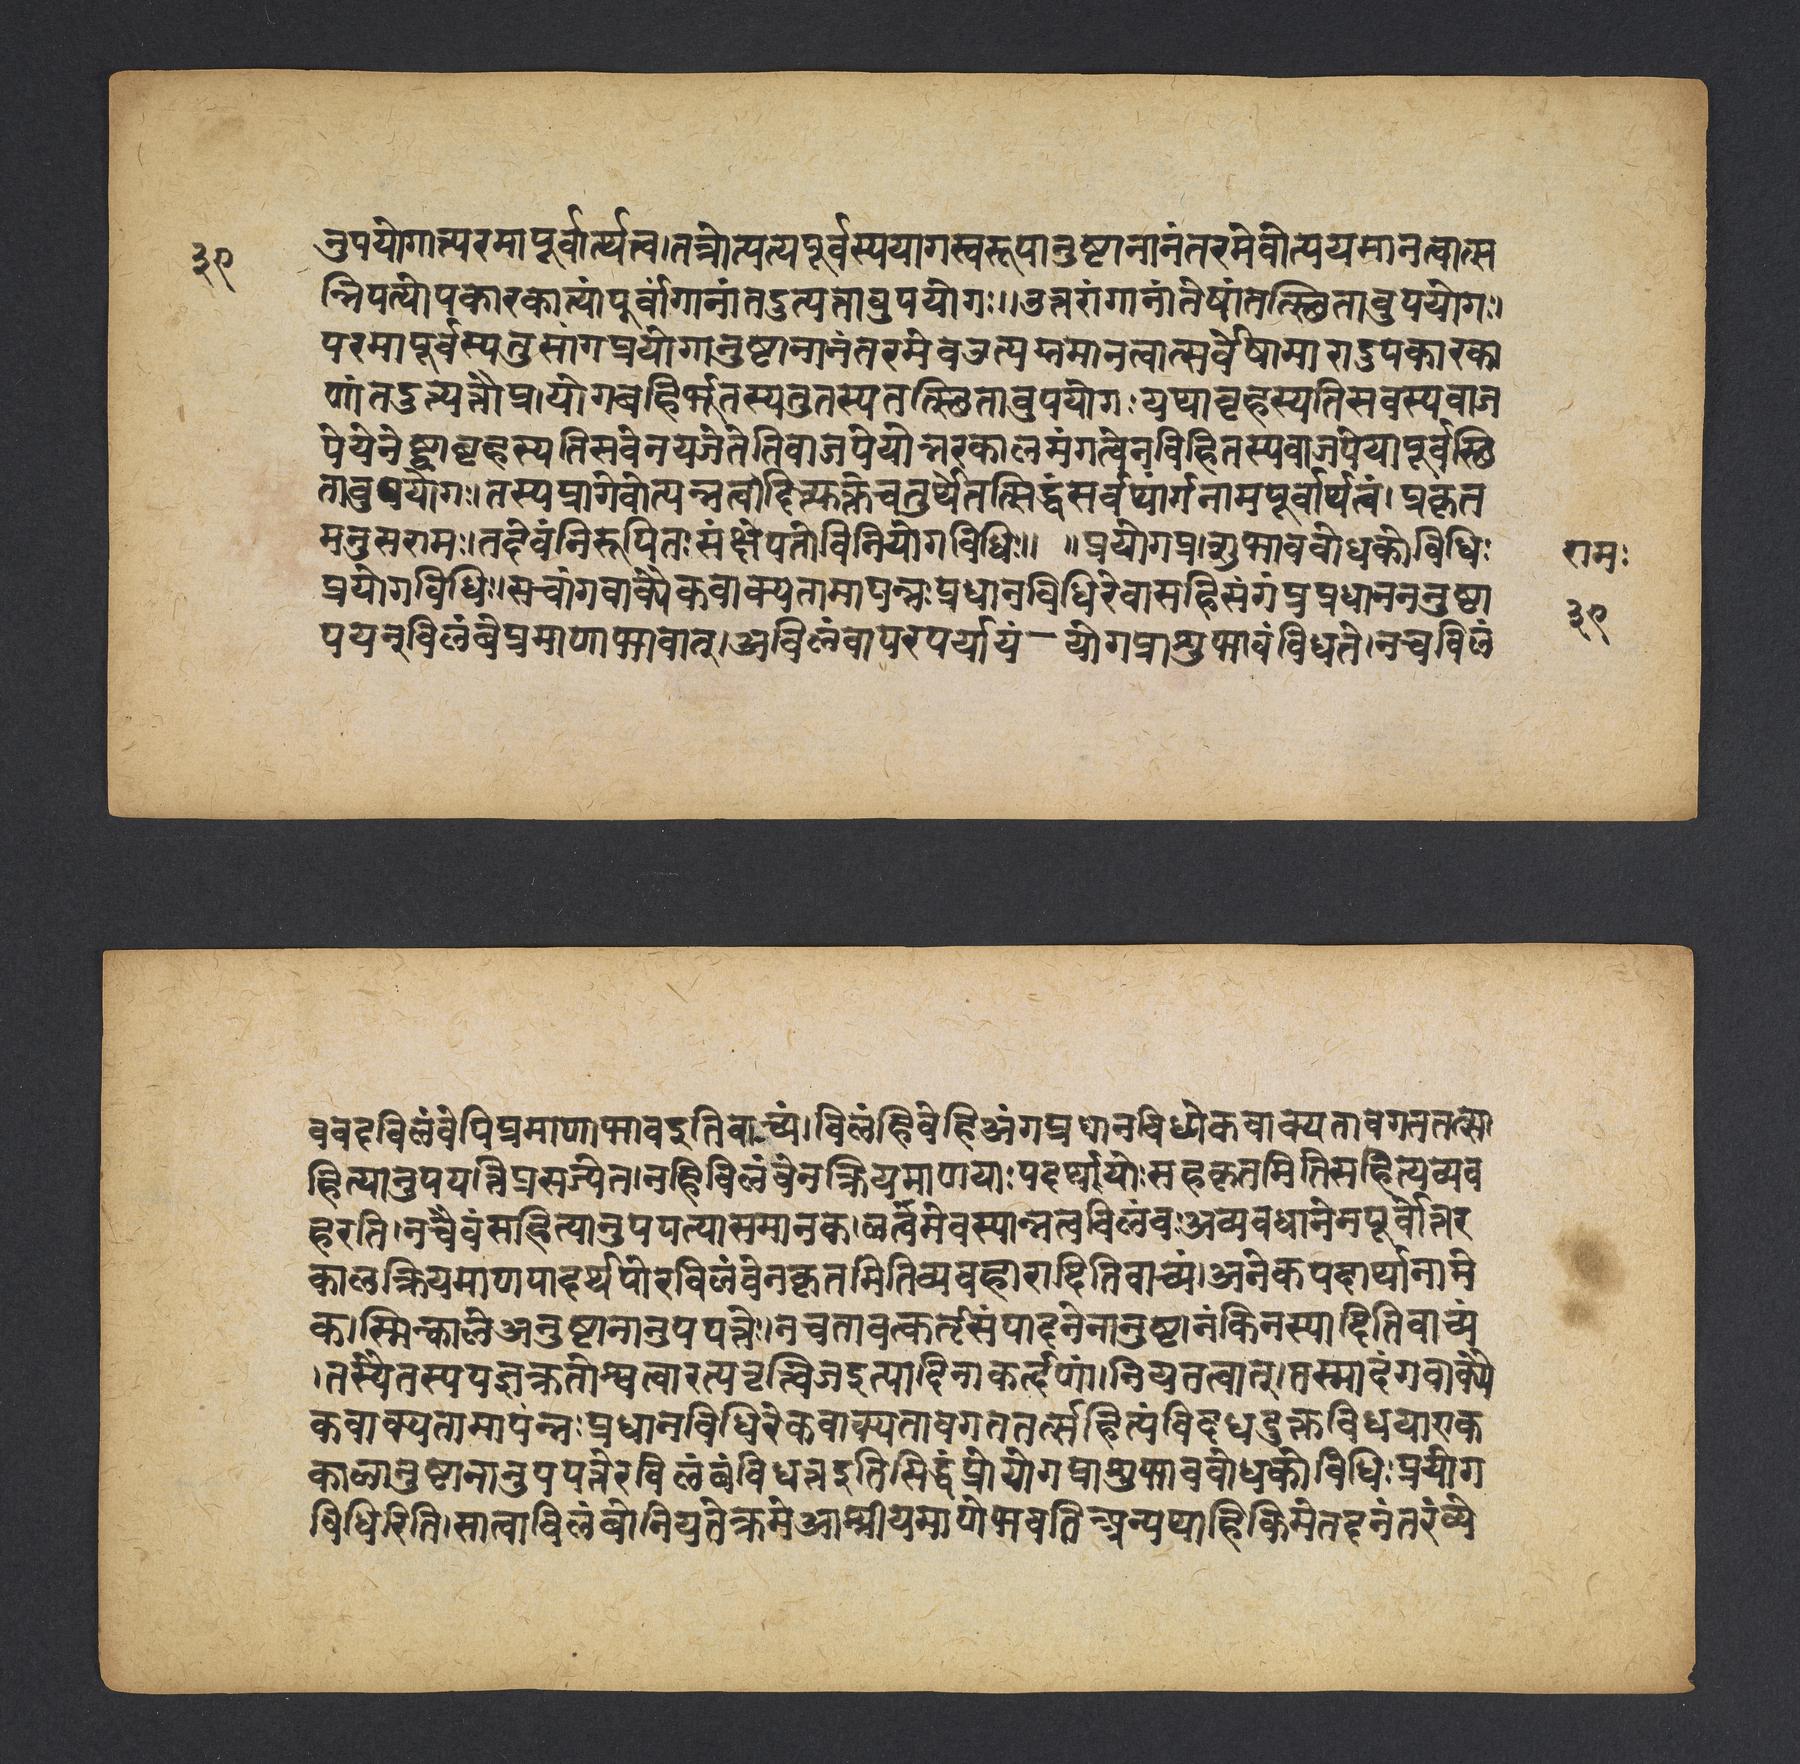 ३९
नुपयोगात्परमापूर्वार्त्थत्व।तत्रोत्पत्यपूर्वस्ययागस्वरूपानुष्टानानंतरमेवोत्पयमानत्वात्स
न्निपत्योपकारकात्यांपूर्वांगानांतदुत्पत्तावुपयोगः।।उत्तरांगानांतेषांतत्स्छितावुपयोगः।
परमापूर्वस्यतुसांगप्रयोगानुष्टानानंतरमेवउत्पन्नमानत्वात्सर्वेषामारादुपकारका
णांतदुत्पत्तौप्रायोगबहिर्भूतस्यतुतस्यतत्स्छितावुपयोगःयथाबृहस्पतिसवस्यवाज
पेयेनेष्ट्वाबृहस्पतिसवेनयजेतेतिवाजपेयोत्तरकालमंगत्वेनविहितस्यवाजपेयापूर्वस्छि
तावुपयोगः।तस्यप्रागेवोत्पन्नत्वोदित्युक्तंचतुर्थेतत्सिद्धंसर्वथांर्गनामपूर्वार्थत्वं।प्रकृत
मनुसरामः।तदेवंनिरूपितःसंक्षेपतोविनियोगविधिः।। ॥प्रयोगप्राशुभावबोधकोविधिः
प्रयोगविधिः।सचांगवाक्यैकवाक्यतामापन्नःप्रधानविधिरेवासहिसंगंप्रप्रधानननुष्ठा
पयन्विलंबेप्रमाणाभावात्।अविलंबापरपर्यायं—योगप्राशुभावंविधते।नचविलं
रामः
३९
ववदविलंबेपिप्रमाणाभावइतिवाच्यं।विलंहिवेहिअंगप्रधानविध्येकवाक्यतावगततत्सा
हित्यानुपपत्तिप्रसज्येत।नहिविलंबेनक्रियमाणयाःपदर्थायोःसहकृतमितिसहित्यव्यव
हरति।नचैवंसहित्यानुपपत्यासमानक।लर्त्वमेवस्यान्नत्वविलंबःअव्यवधानेनपूर्वोत्तर
कालक्रियमाणपादर्थपोरविलंबेनकृतमितिव्यवहारादितिवाच्यं।अनेकपदार्थानामे
क।स्मिन्कालेअनुष्टानानुपपत्तेः।नचतावत्कर्तृसंपादनेनानुष्टानंकिनस्यादितिवाच्यं
।तस्यैतस्पयज्ञक्रतोश्चत्वारत्पऋत्विजइत्यादिनाकर्तॄणां।नियतत्वात्।तस्मादंगवाक्यै
कवाक्यतामापंन्नःप्रधानविधिरेकवाक्यतावगततर्त्साहित्यंविदधदुक्तविधयाएक
कालानुष्टानानुपपत्तेरविलंबंविधत्तइतिसिद्धंप्रोयोगप्राशुभावबोधकोविधिःप्रयोग
विधिरिति।सात्वाविलंबो।नियतेक्रमेआश्रीयमाणेभवतिन्प्रन्यथाहिकिमेतदनंतरंव्ये